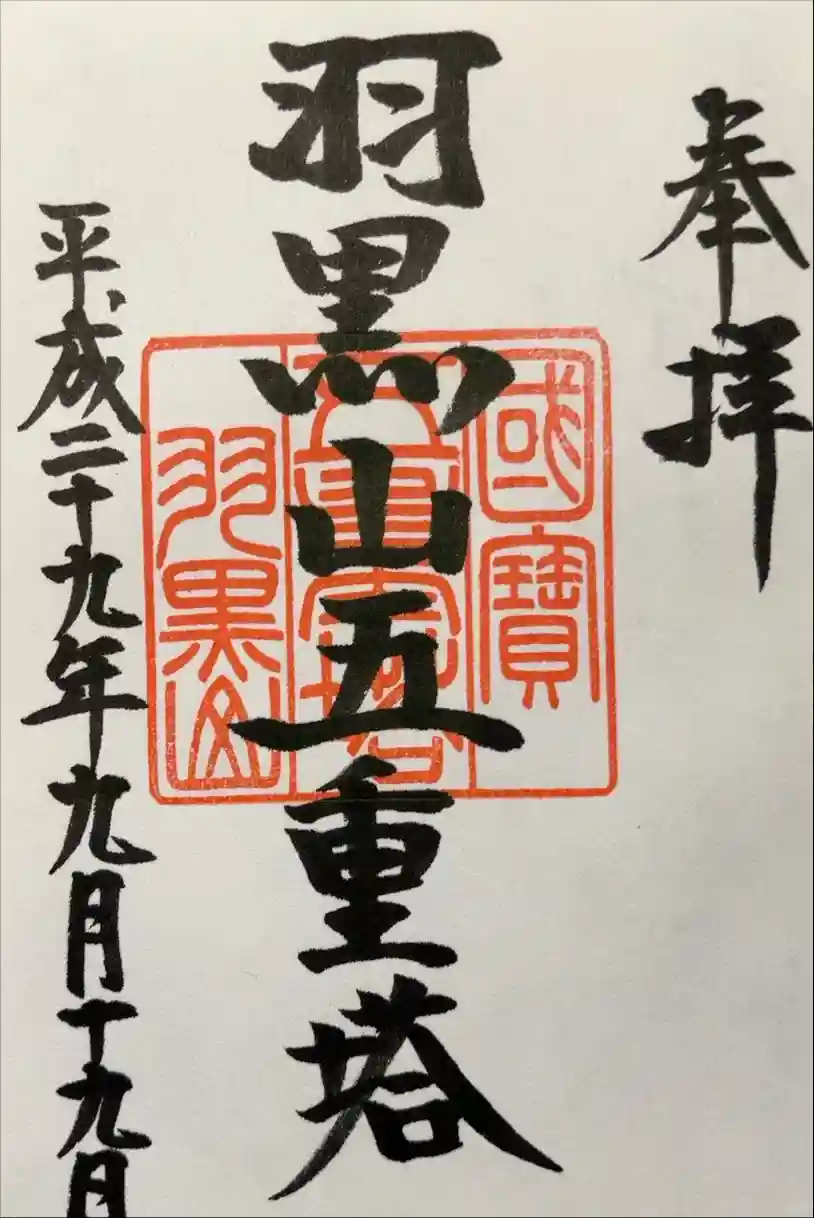 奉拝
羽黒山五重塔
國寶
五重塔
羽黑山
平成二十九年九月十九日